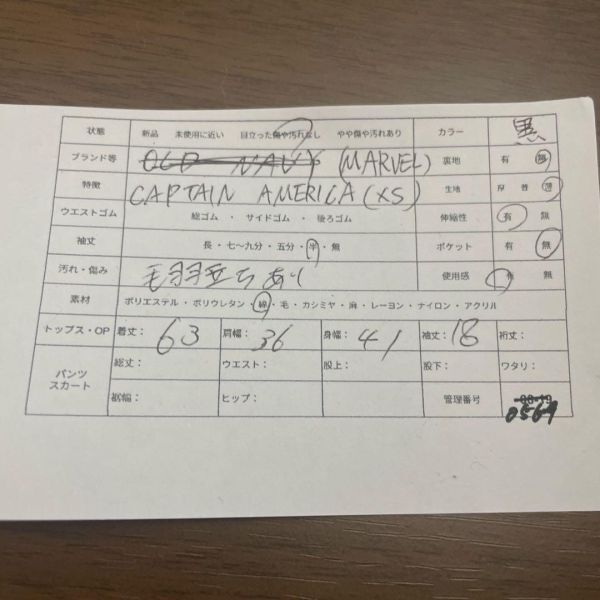 状態 新品 未使用に近い 目立った傷や汚れなし やや傷や汚れあり カラー 黒
ブランド等 OLD NAVY (MARVEL) 裏地 有 無
特徴 CAPTAIN AMERICA (XS) 生地 厚 普 薄
ウエストゴム 総ゴム ・ サイドゴム ・ 後ろゴム 伸縮性 有 無
袖丈 長 ・ 七〜九分 ・ 五分 ・ 半 ・ 無 ポケット 有 無
汚れ・傷み 毛羽立ちあり 使用感 有 無
素材 ポリエステル ・ ポリウレタン ・ 綿 ・ 毛 ・ カシミヤ ・ 麻 ・ レーヨン ・ ナイロン ・ アクリル
トップス・OP 着丈： 63 肩幅： 36 身幅： 41 袖丈： 18 裄丈：
パンツ スカート 総丈： ウエスト： 股上： 股下： ワタリ：
裾幅： ヒップ： 管理番号
0569